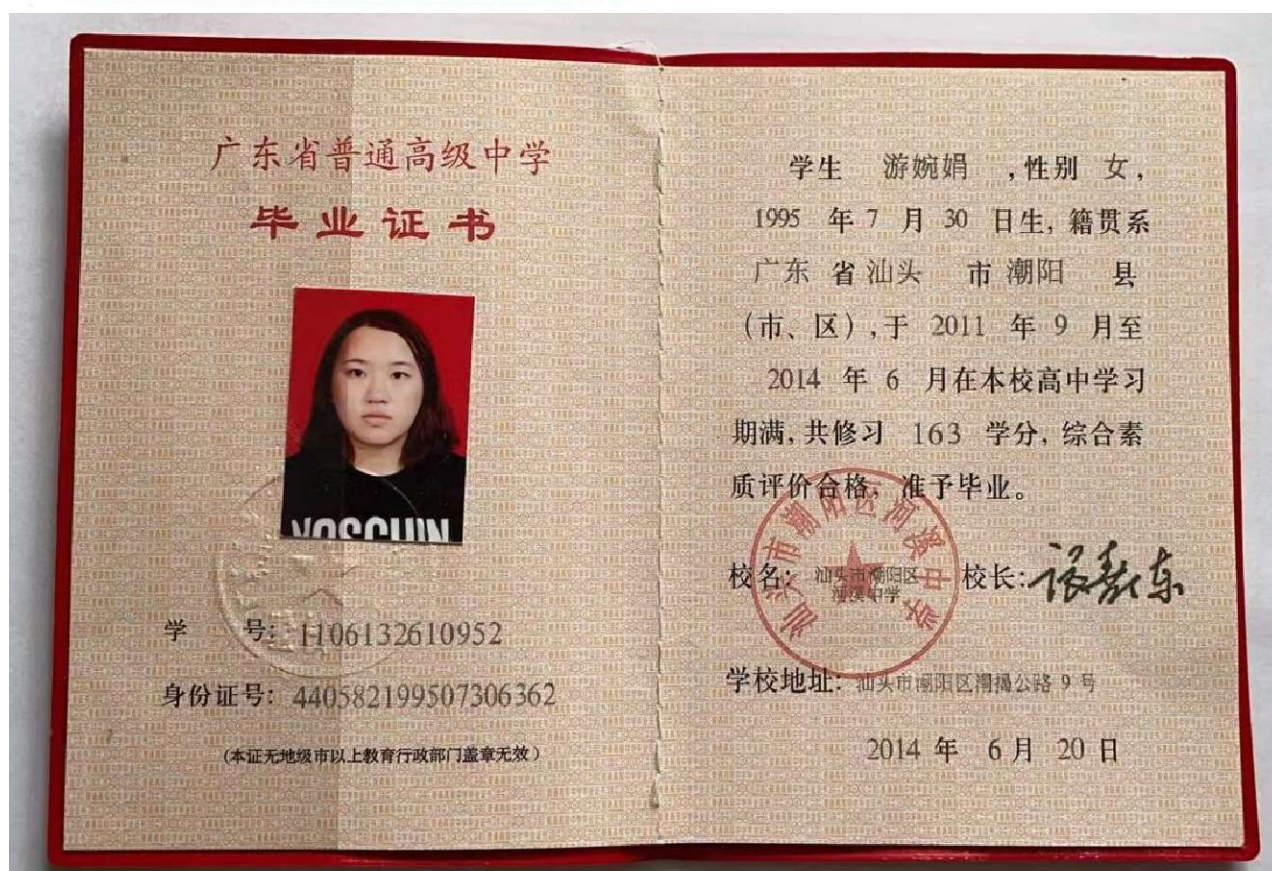 广东省普通高级中学
毕业证书
YOSCHIN
学 号: 1106132610952
身份证号: 440582199507306362
(本证无地级市以上教育行政部门盖章无效)
学生 游婉娟 ,性别 女,
1995 年 7 月 30 日生, 籍贯系
广东 省 汕头 市 潮阳 县
(市、区), 于 2011 年 9 月至
2014 年 6 月在本校高中学习
期满, 共修习 163 学分, 综合素
质评价合格, 准予毕业。
汕头市潮阳区河溪中学
校名: 汕头市潮阳区 校长:
河溪中学
学校地址: 汕头市潮阳区潮揭公路 9 号
2014 年 6 月 20 日